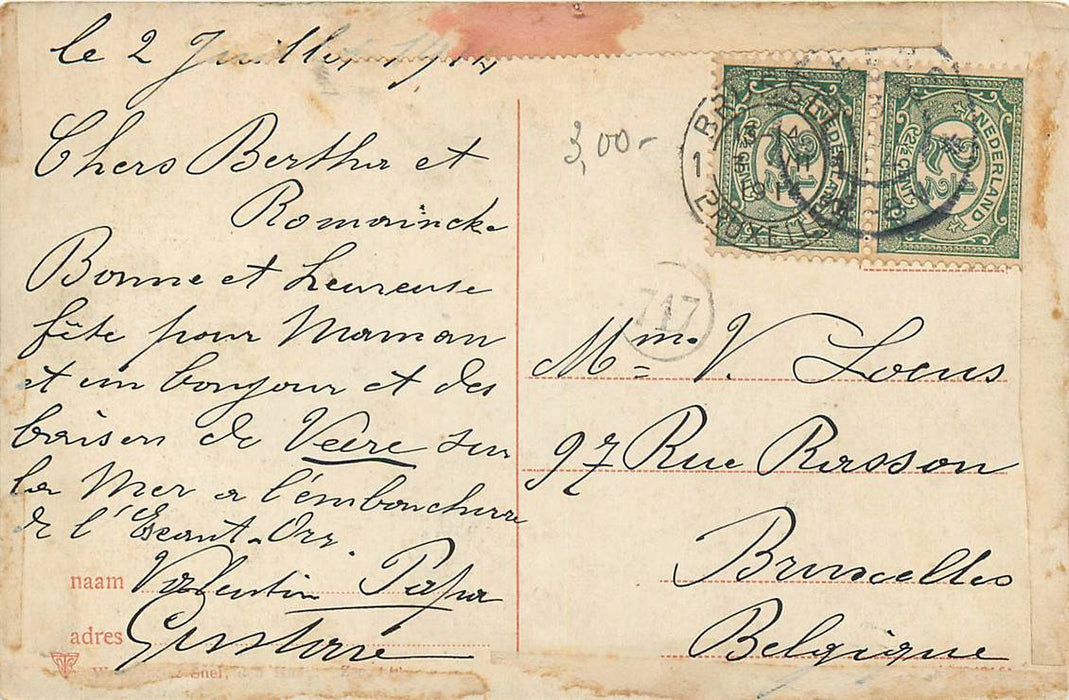 le 2 Juillet 1914
Chers Bertha et
Romaincke
Bonne et heureuse
fête pour Maman
et un bonjour et des
baisers de Veere sur
La Mer a l'embouchure
de l'Escaut. Orr.
naam Valentin Papa
adres Gustave
3,00-
NEDERLAND
2½ CENT
NEDERLAND
2½ CENT
717
Mme V. Locus
97 Rue Rasson
Bruxelles
Belgique